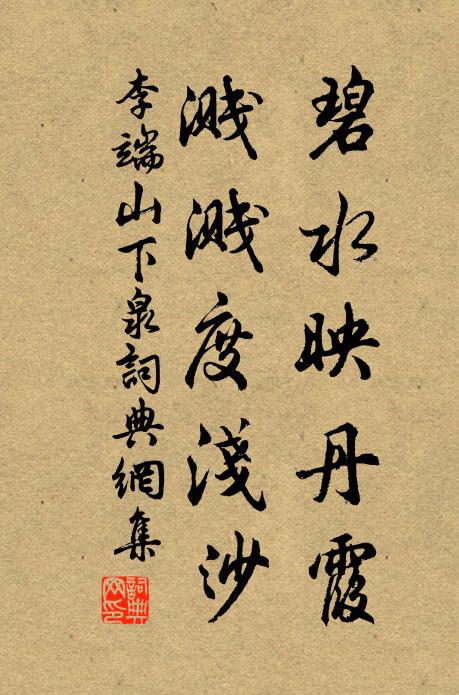 碧水映丹霞
濺濺度淺沙
李端山下泉詞典網集
詞典网印